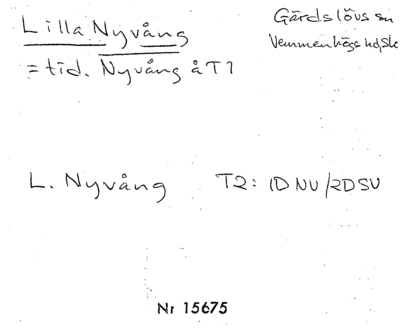 Lilla Nyvång
Gärdslövs sn
Vemmenhögs hd, Sk
= tid. Nyvång å T1
L. Nyvång T2: 1D NV/2D SV
Nr 15675